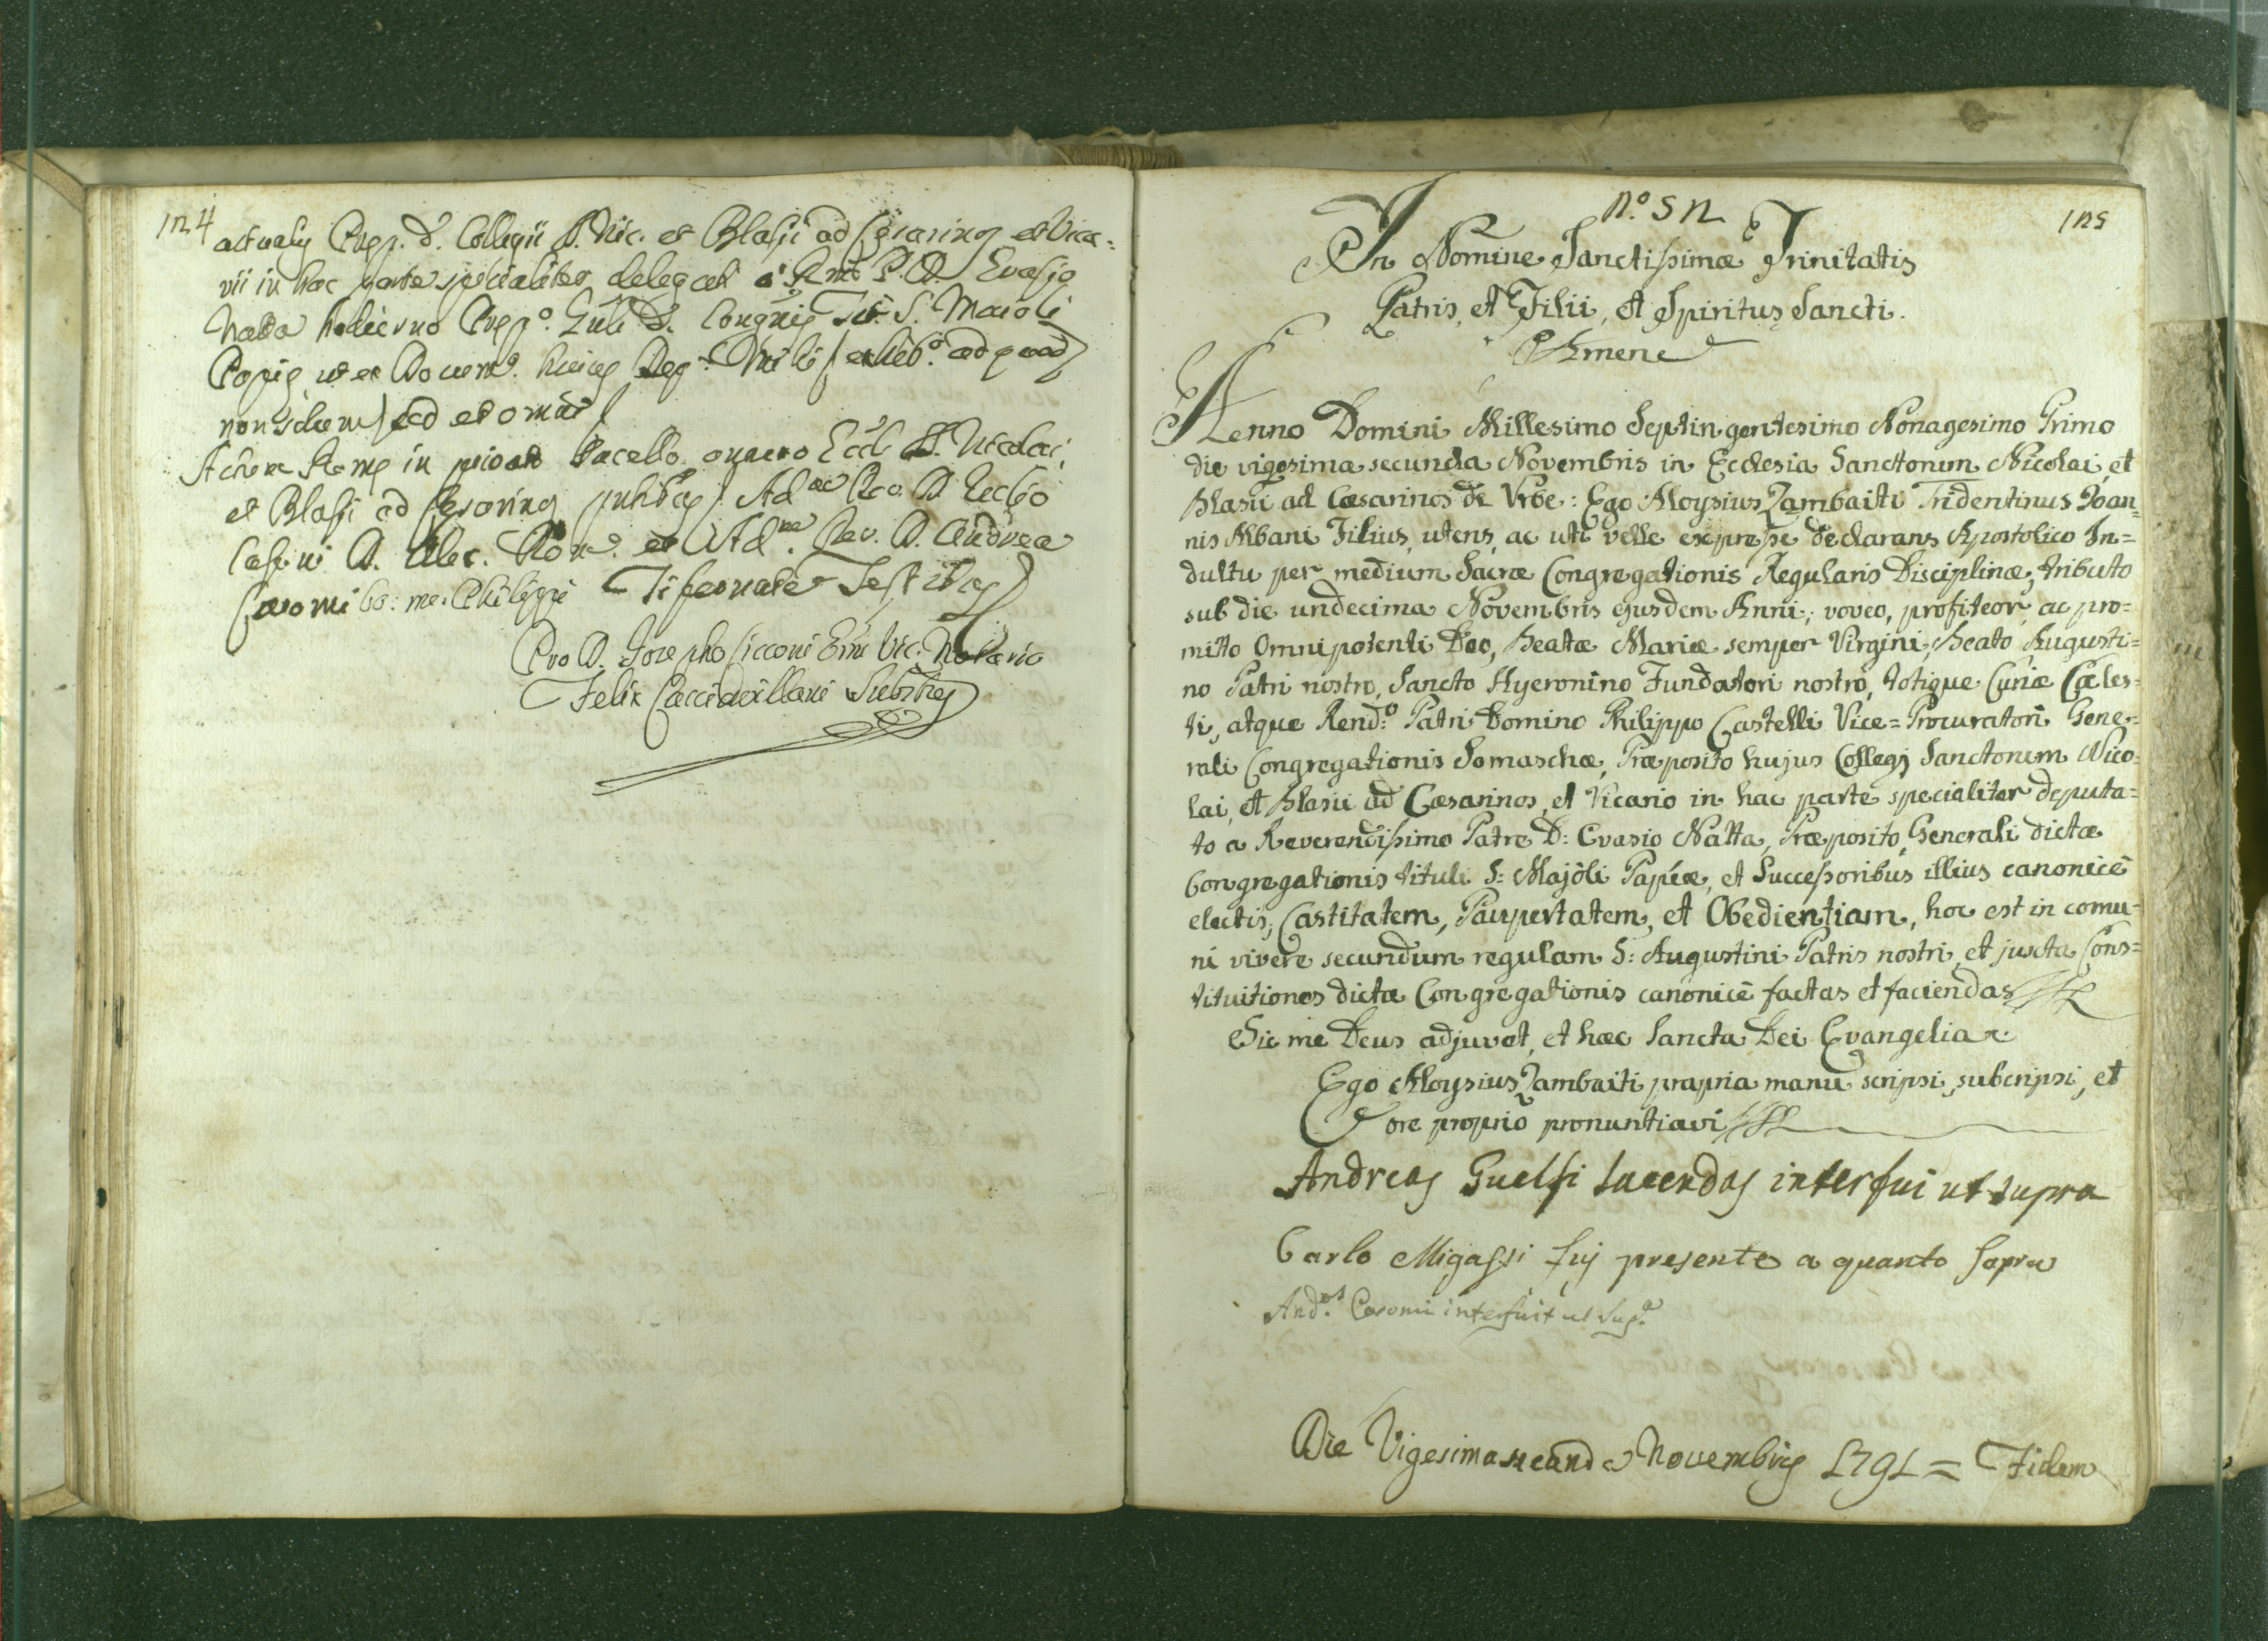 124
actualis Prep. d. Collegii SS. Nic. et Blasii ad Cesarinos et Vica=
rii in hac parte specialiter delegati a Rmo P. D. Evasio
Natta hodierno Prep.o Gnli d. Congnis Tit. S. Maioli
Papie, ut ex Docum.o huius
non solum sed et omni
Actum Rome in Sacello Eccl. SS. Nicolai,
et Blasii ad Cesarinos Ad.m Rev. D.
D. Alex. Rom.o et Ad.m Rev. D. Andrea
Caromi bo: me: Philippi Tifernate Testibus
Pro D. Josepho Cicconi Emi Vic. Notario
Felix Substus
N.o 52
125
In Nomine Sanctissimæ Trinitatis
Patris, et Filii, et Spiritus Sancti.
Amen
Anno Domini Millesimo Septingentesimo Nonagesimo Primo
die vigesima secunda Novembris in Ecclesia Sanctorum Nicolai, et
Blasii ad Cæsarinos de Urbe: Ego Aloysius Zambaiti Tridentinus Joan=
nis Albani Filius, utens, ac uti velle expresse declarans Apostolico In=
dultu per medium Sacræ Congregationis Regularis Disciplinæ, tributo
sub die undecima Novembris ejusdem Anni, voveo, profiteor, ac pro=
mitto Omnipotenti Deo, Beatæ Mariæ semper Virgini, Beato Augusti=
no Patri nostro, Sancto Hyeronino Fundatori nostro, totique Curiæ Cæles=
ti, atque Rend:o Patri Domino Philippo Castelli Vice=Procuratori Gene=
rali Congregationis Somaschæ, Præposito hujus Collegj Sanctorum Nico=
lai, et Blasii ad Cæsarinos, et Vicario in hac parte specialiter deputa=
to a Reverendissimo Patre D: Evasio Natta, Præposito Generali dictæ
Congregationis tituli S: Majoli Papiæ, et Successoribus illius canonicè
electis, Castitatem, Paupertatem, et Obedientiam, hoc est in comu=
ni vivere secundum regulam S: Augustini Patris nostri, et juxta Cons=
tituitiones dictæ Congregationis canonicè factas et faciendas
Sic me Deus adjuvet, et hæc Sancta Dei Evangelia.
Ego Aloysius Zambaiti propria manu scripsi, subcripsi, et
ore proprio pronuntiavi
Andreas Guelfi Sacerdos interfui ut supra
Carlo Migassi fuj presente a quanto sopra
And.as Caromi interfuit ut sup.a
Die Vigesima secunda Novembris 1791 = Fidem